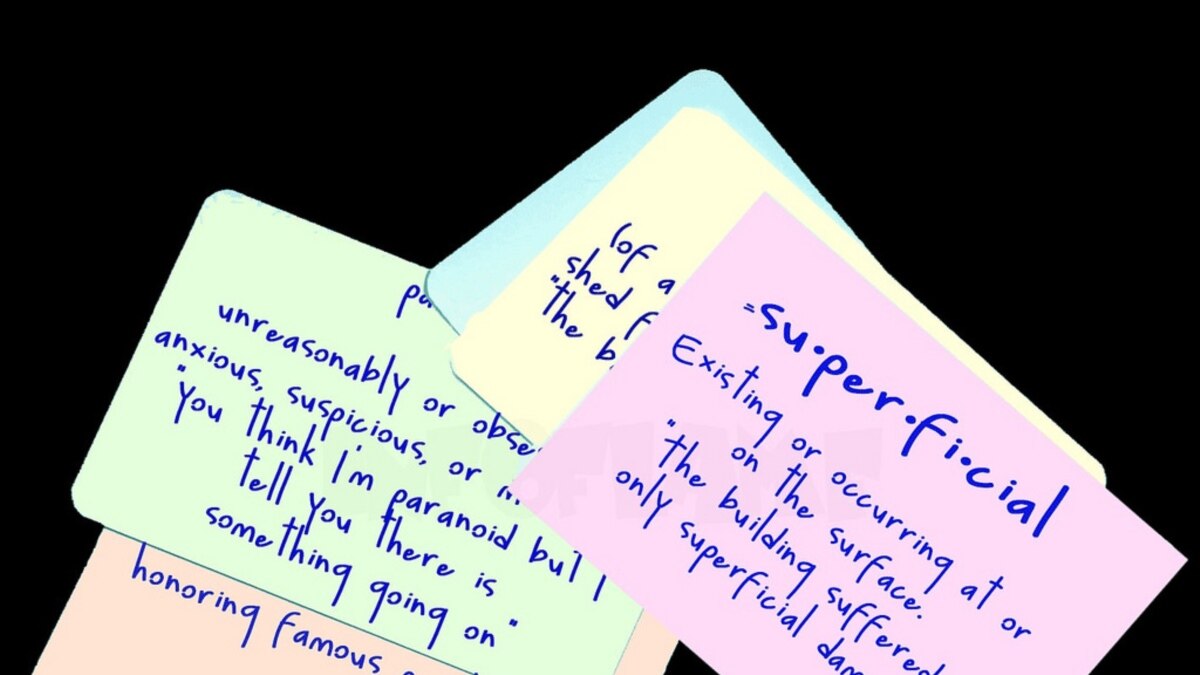 pa
unreasonably or obse
anxious, suspicious, or m
"You think I'm paranoid but I
tell you there is
something going on"
honoring famous
(of a
shed f
"the b
=su·per·fi·cial
Existing or occurring at or
on the surface.
"the building suffered
only superficial dam